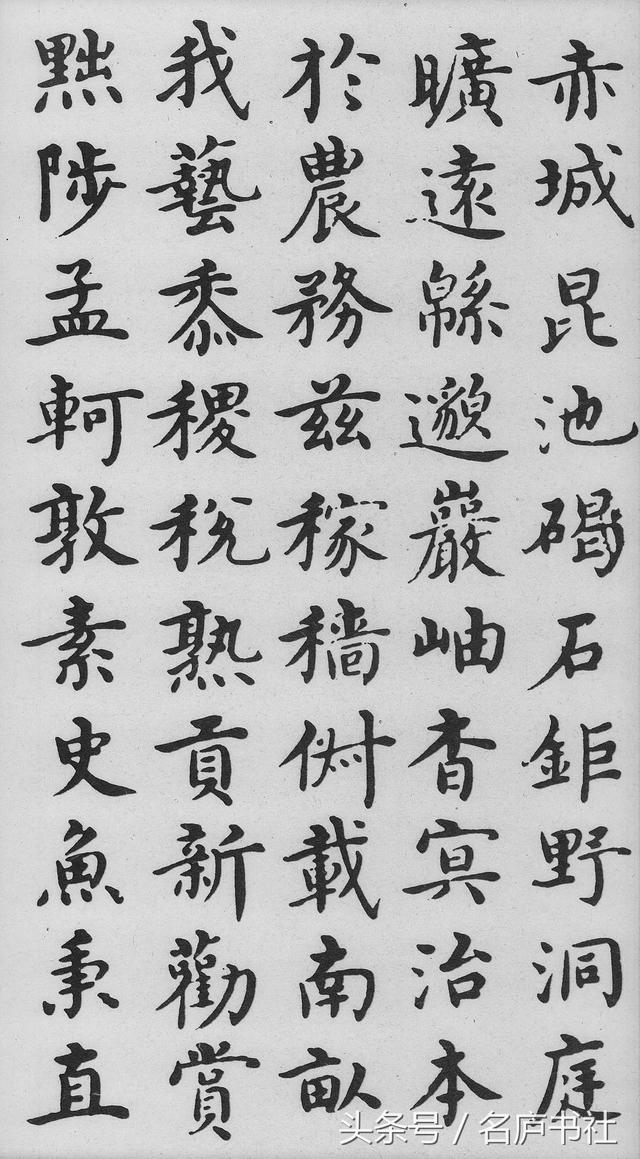 赤城昆池碣石鉅野洞庭
曠遠緜邈巖岫杳冥治本
於農務茲稼穡俶載南畝
我藝黍稷稅熟貢新勸賞
黜陟孟軻敦素史魚秉直
头条号 / 名庐书社